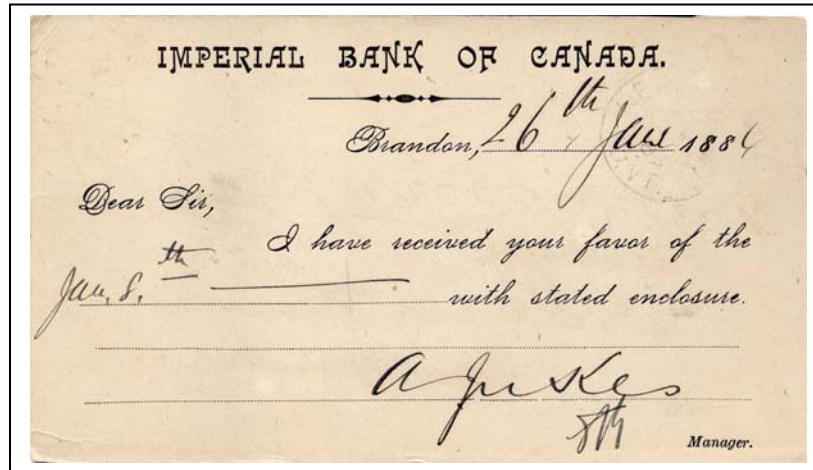 IMPERIAL BANK OF CANADA.
Brandon, 26th 188
Dear Sir,
I have received your favor of the
Jan. 8.th with stated enclosure.
A Jukes
Manager.